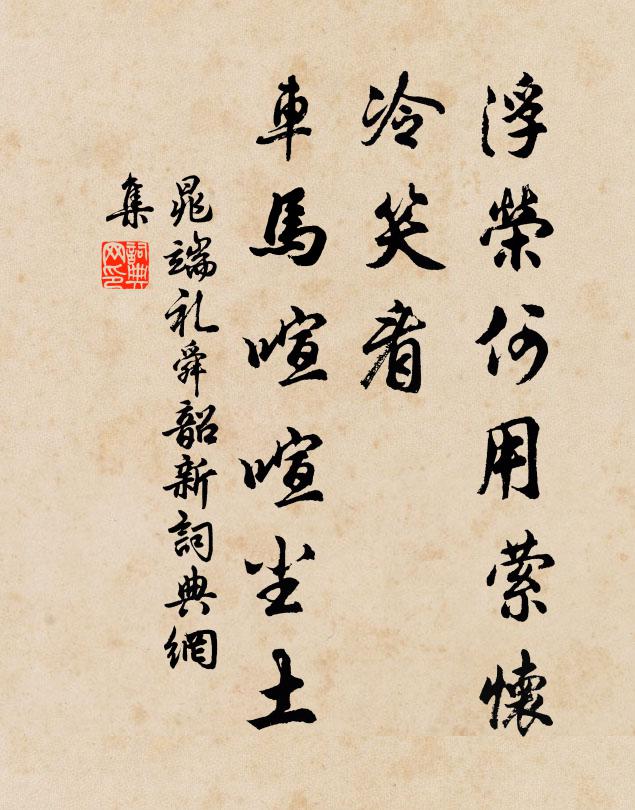 浮榮何用縈懷
冷笑看
車馬喧喧尘土
晁端礼舜韶新詞典網
集
詞典网印